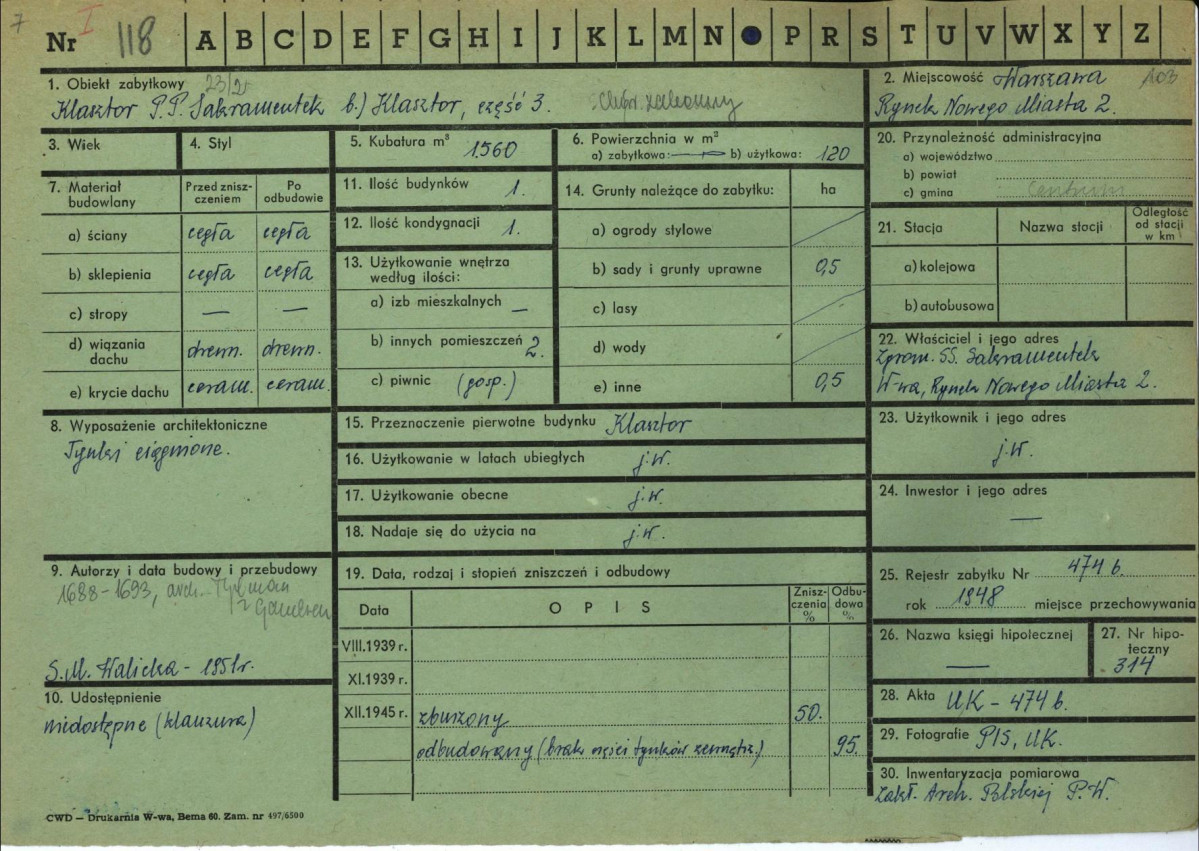 7
Nr I 118 A B C D E F G H I J K L M N P R S T U V W X Y Z
1. Obiekt zabytkowy 23/2
Klasztor P.P. Sakramentek b.) Klasztor, część 3.
2. Miejscowość Warszawa 103
Rynek Nowego Miasta 2.
3. Wiek
4. Styl
5. Kubatura m³ 1560
6. Powierzchnia w m²
a) zabytkowa: — b) użytkowa: 120
7. Materiał budowlany
Przed zniszczeniem
Po odbudowie
a) ściany cegła cegła
b) sklepienia cegła cegła
c) stropy — —
d) wiązania dachu drewn. drewn.
e) krycie dachu ceram. ceram.
11. Ilość budynków 1.
12. Ilość kondygnacji 1.
13. Użytkowanie wnętrza
według ilości:
a) izb mieszkalnych —
b) innych pomieszczeń 2.
c) piwnic (gosp.)
14. Grunty należące do zabytku: ha
a) ogrody stylowe
b) sady i grunty uprawne 0,5
c) lasy
d) wody
e) inne 0,5
20. Przynależność administracyjna
a) województwo
b) powiat
c) gmina Centrum
21. Stacja Nazwa stacji
Odległość
od stacji
w km
a) kolejowa
b) autobusowa
22. Właściciel i jego adres
Zgrom. SS. Sakramentek
W-wa, Rynek Nowego Miasta 2.
8. Wyposażenie architektoniczne
Tynki ciągnione.
15. Przeznaczenie pierwotne budynku Klasztor
16. Użytkowanie w latach ubiegłych j.w.
17. Użytkowanie obecne j.w.
18. Nadaje się do użycia na j.w.
23. Użytkownik i jego adres
j.w.
24. Inwestor i jego adres
—
9. Autorzy i data budowy i przebudowy
1688-1693, arch. Tylman
z Gameren
S.M. Walicka - 1951r.
10. Udostępnienie
niedostępne (klauzura)
19. Data, rodzaj i stopień zniszczeń i odbudowy
Data O P I S
Zniszczenia %
Odbudowa %
VIII.1939 r.
XI.1939 r.
XII.1945 r. zburzony 50.
odbudowany (brak części tynków zewnętrz.) 95.
25. Rejestr zabytku Nr 474 b.
rok 1948 miejsce przechowywania
26. Nazwa księgi hipotecznej
—
27. Nr hipoteczny
314
28. Akta UK - 474 b.
29. Fotografie PIS, UK.
30. Inwentaryzacja pomiarowa
Zakł. Arch. Polskiej P.W.
CWD — Drukarnia W-wa, Bema 60. Zam. nr 497/6500